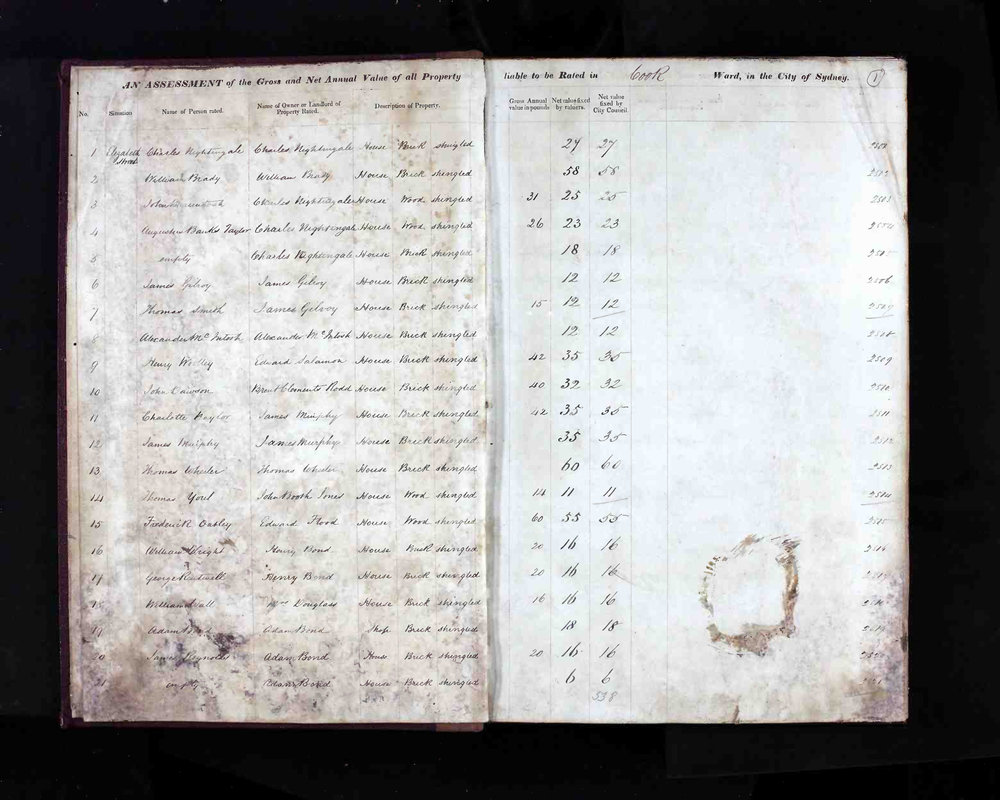 AN ASSESSMENT of the Gross and Net Annual Value of all Property liable to be Rated in Cook Ward, in the City of Sydney. 1
No. Situation Name of Person rated. Name of Owner or Landlord of Property Rated. Description of Property. Gross Annual value in pounds Net value fixed by valuers. Net value fixed by City Council.
1 Elizabeth Street Charles Nightingale Charles Nightingale House Brick shingled 27 27
2 William Brady William Brady House Brick shingled 58 58
3 John Charles Nightingale House Wood shingled 31 25 25 2503
4 Augustus Banks Taylor Charles Nightingale House Wood shingled 26 23 23 2504
5 empty Charles Nightingale House Brick shingled 18 18 2505
6 James Gilroy James Gilroy House Brick shingled 12 12 2506
7 Thomas Smith James Gilroy House Brick shingled 15 12 12 2507
8 Alexander McIntosh Alexander McIntosh House Brick shingled 12 12 2508
9 Henry Edward Salamon House Brick shingled 42 35 35 2509
10 John Dawson Brent Clements Rodd House Brick shingled 40 32 32 2510
11 Charlotte Taylor James Murphy House Brick shingled 42 35 35 2511
12 James Murphy James Murphy House Brick shingled 35 35 2512
13 Thomas Wheeler Thomas Wheeler House Brick shingled 60 60 2513
14 Thomas John Booth Jones House Wood shingled 14 11 11 2514
15 Frederick Oatley Edward Flood House Wood shingled 60 55 55 2515
16 William Wright Henry Bond House Brick shingled 20 16 16 2516
17 George Henry Bond House Brick shingled 20 16 16
18 William Mrs Douglass House Brick shingled 16 16 16
19 Adam Bond Adam Bond Shop Brick shingled 18 18
20 James Reynolds Adam Bond House Brick shingled 20 16 16
21 empty Adam Bond House Brick shingled 6 6
538